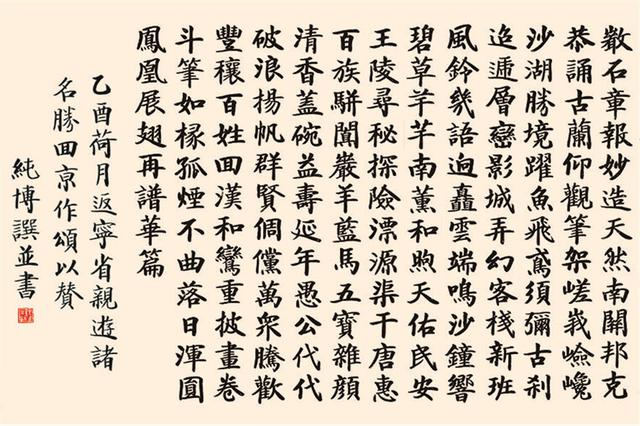 石章報妙造天然南關邦克
恭誦古蘭仰觀筆架嵯峩嶮巉
沙湖勝境躍魚飛鳶須彌古刹
迤逦層巒影城弄幻客棧新班
風鈴幾語迥矗雲端鳴沙鐘響
碧草芊芊南薰和煦天佑民安
王陵尋秘探險漂源渠千唐惠
百族駢闐巖羊藍馬五寶雜顔
清香蓋碗益壽延年愚公代代
破浪揚帆群賢倜儻萬衆騰歡
豐穰百姓回漢和鸞重披畫卷
斗筆如椽孤煙不曲落日渾圓
鳳凰展翅再譜華篇
乙酉荷月返寧省親遊諸
名勝回京作頌以贊
純博譔並書